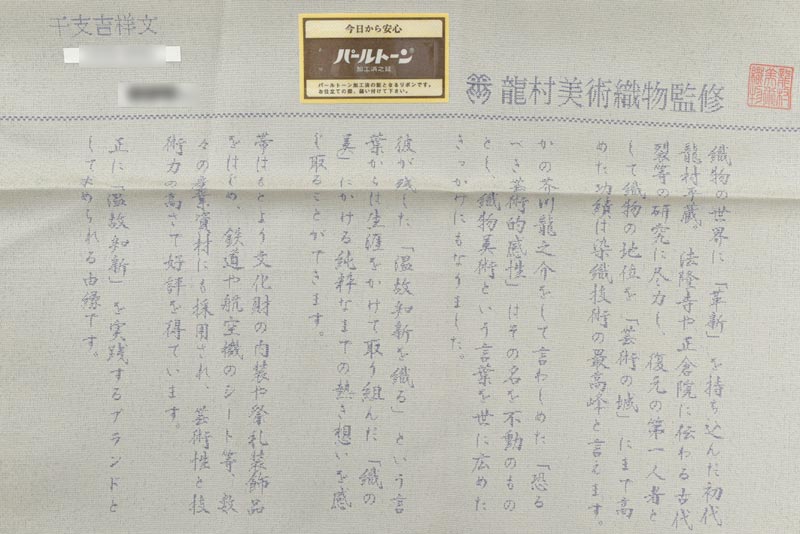 干支吉祥文
今日から安心
パールトーン®
加工済之証
パールトーン加工済の証となるリボンです。
お仕立ての際、縫い付けて下さい。
龍村美術織物監修
織物の世界に「革新」を持ち込んだ初代
龍村平蔵。法隆寺や正倉院に伝わる古代
裂等の研究に尽力し、復元の第一人者と
して織物の地位を「芸術の域」にまで高
めた功績は染織技術の最高峰と言えます。
かの芥川龍之介をして言わしめた「恐る
べき芸術的感性」はその名を不動のもの
とし、織物美術という言葉を世に広めた
きっかけにもなりました。
彼が残した「温故知新を織る」という言
葉からは生涯をかけて取り組んだ「織の
美」にかける純粋なまでの熱き想いを感
じ取ることができます。
帯はもとより文化財の内装や祭礼装飾品
をはじめ、鉄道や航空機のシート等、数
々の産業資材にも採用され、芸術性と技
術力の高さで好評を得ています。
正に「温故知新」を実践するブランドと
して求められる由縁です。